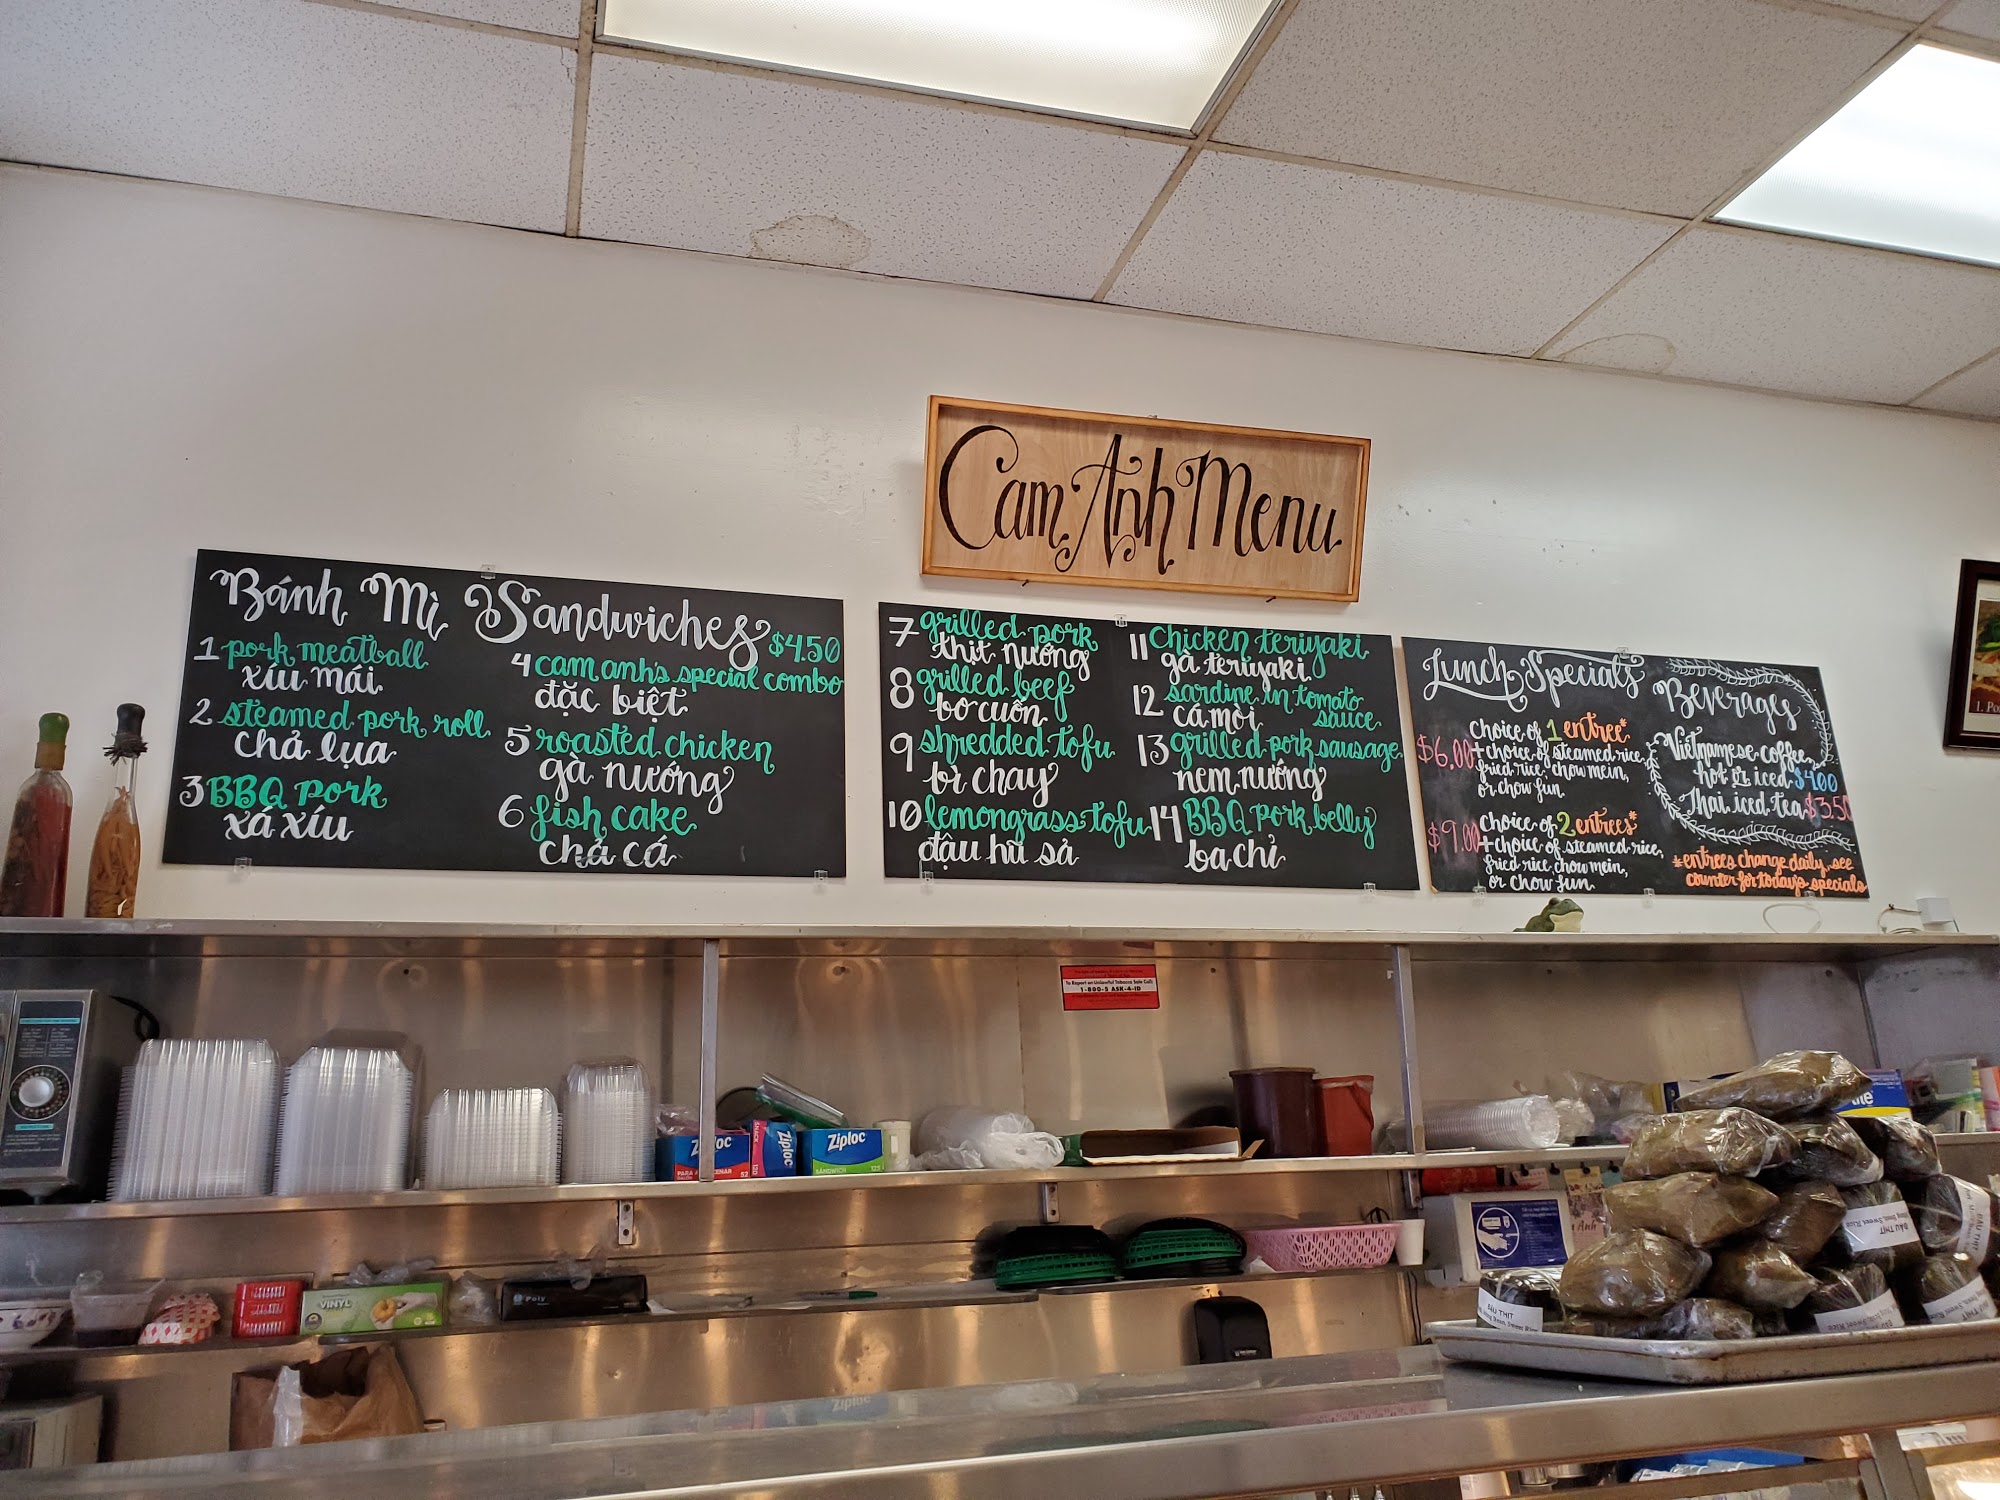 Cam Anh Menu
Bánh Mì Sandwiches $4.50
1 pork meatball
xíu mái
2 steamed pork roll
chả lụa
3 BBQ pork
xá xíu
4 cam anh's special combo
đặc biệt
5 roasted chicken
gà nướng
6 fish cake
chả cá
7 grilled pork
thịt nướng
8 grilled beef
bò cuốn
9 shredded tofu
bì chay
10 lemongrass tofu
đậu hủ sả
11 chicken teriyaki
gà teriyaki
12 sardine in tomato
sauce
cá mòi
13 grilled pork sausage
nem nướng
14 BBQ pork belly
ba chỉ
Lunch Specials
$6.00 choice of 1 entree*
+ choice of steamed rice,
fried rice, chow mein,
or chow fun
$9.00 choice of 2 entrees*
+ choice of steamed rice,
fried rice, chow mein,
or chow fun
Beverages
Vietnamese coffee,
hot or iced $4.00
Thai iced tea $3.50
*entrees change daily, see
counter for today's specials
To Report an Unlawful Tobacco Sale Call:
1-800-5 ASK-4-ID
Ziploc
Ziploc
Ziploc
SANDWICH 125
VINYL
Poly
BÁU THỊT
BÁU THỊT
1. Po